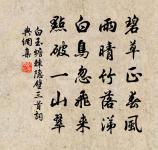 碧草正春風
雨晴竹落涕
白鳥忽飛來
點破一山翠
白玉蟾棘隱壁三首詞
典網集